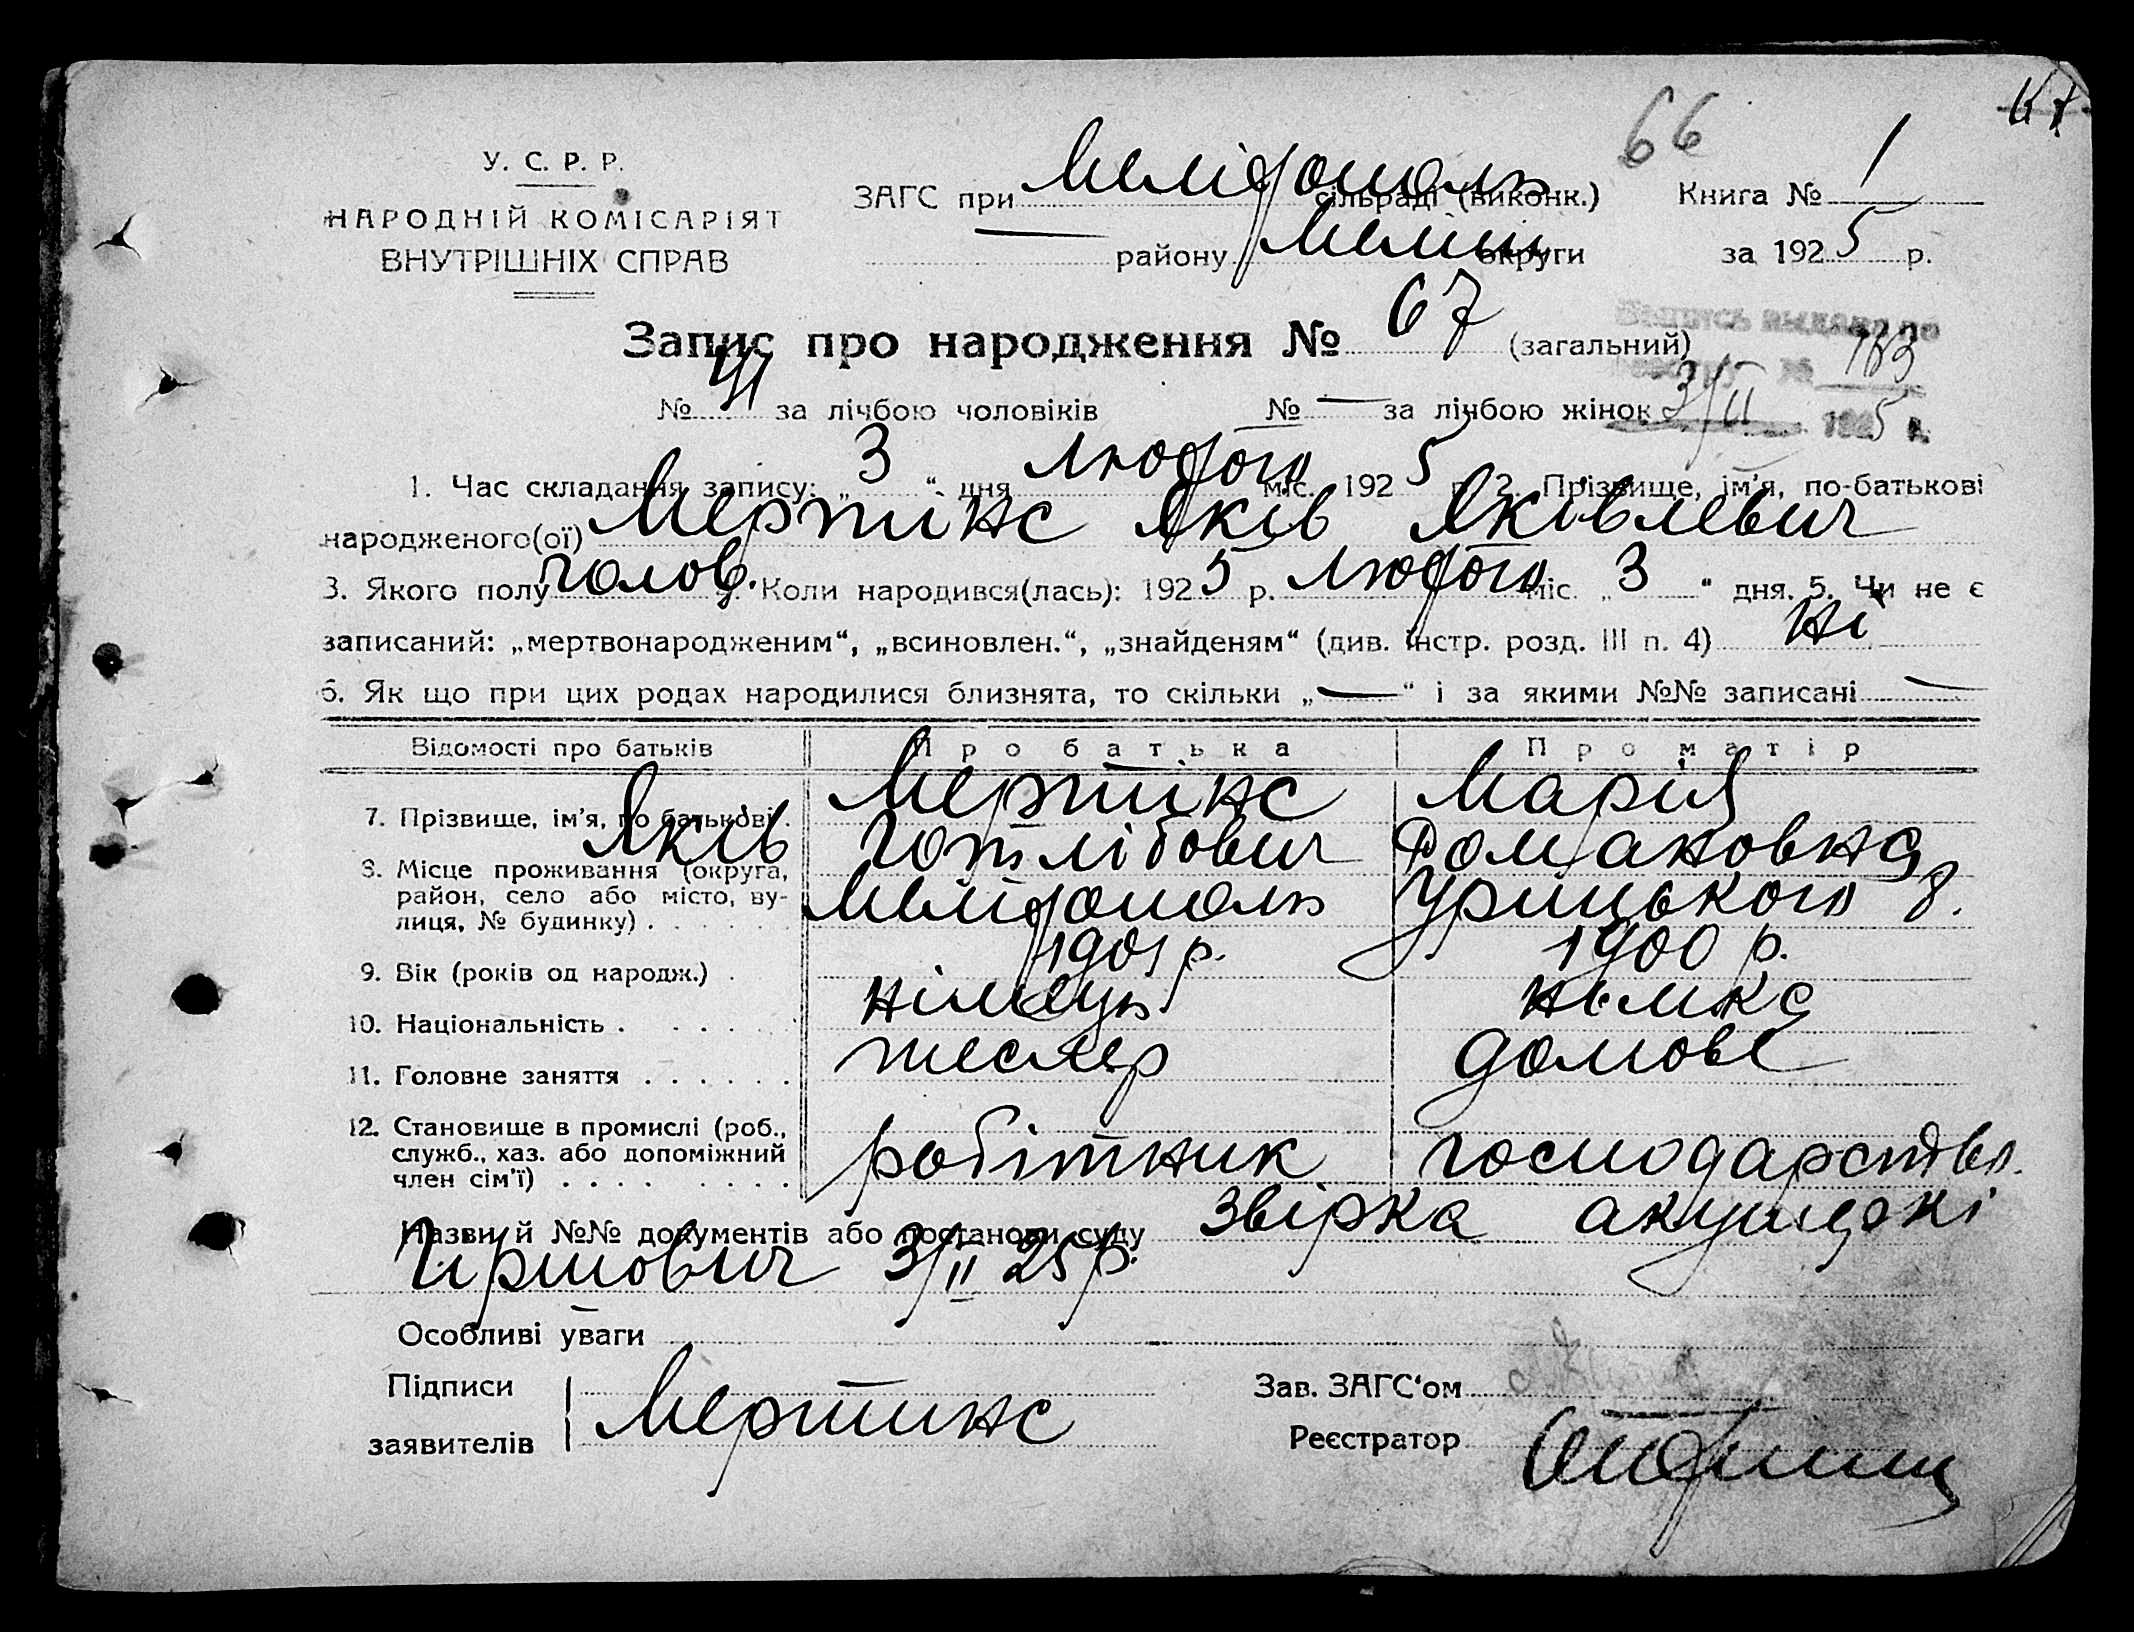 66
У. С. Р. Р.
НАРОДНІЙ КОМІСАРІЯТ
ВНУТРІШНІХ СПРАВ
ЗАГС при Мелітополь сільраді (виконк.)
району Меліт округи
Книга № 1
за 1925 р.
Запис про народження № 67 (загальний)
№ 41 за лічбою чоловіків № — за лічбою жінок
183
3/II 1925 г.
1. Час складання запису: „3“ дня лютого міс. 1925 р. 2. Прізвище, ім'я, по-батькові
народженого(ої) Мертінс Яків Яківлевич
3. Якого полу чолов. 4. Коли народився(лась): 1925 р. лютого міс. „3“ дня. 5. Чи не є
записаний: „мертвонародженим“, „всиновлен.“, „знайденям“ (див. інстр. розд. III п. 4) Ні
6. Як що при цих родах народилися близнята, то скільки „—“ і за якими №№ записані —
Відомості про батьків Про батька Про матір
7. Прізвище, ім'я, по батькові . Мертінс Марія
Яків Готлібович
8. Місце проживання (округа, район, село або місто, вулиця, № будинку) . . . . . . Мелітополь Урицького 8.
9. Вік (років од народж.) . 1901 р. 1900 р.
10. Національність . . . . . . німець німка
11. Головне заняття . . . . . . тесляр домове
12. Становище в промислі (роб., служб., хаз. або допоміжний член сім'ї) . . . . . . . . робітник господарство.
Назви й №№ документів або постанови суду Звірка акушерки
Гиршович 3/II 25 р.
Особливі уваги
Підписи
заявителів
Мертинс
Зав. ЗАГС'ом
Реєстратор